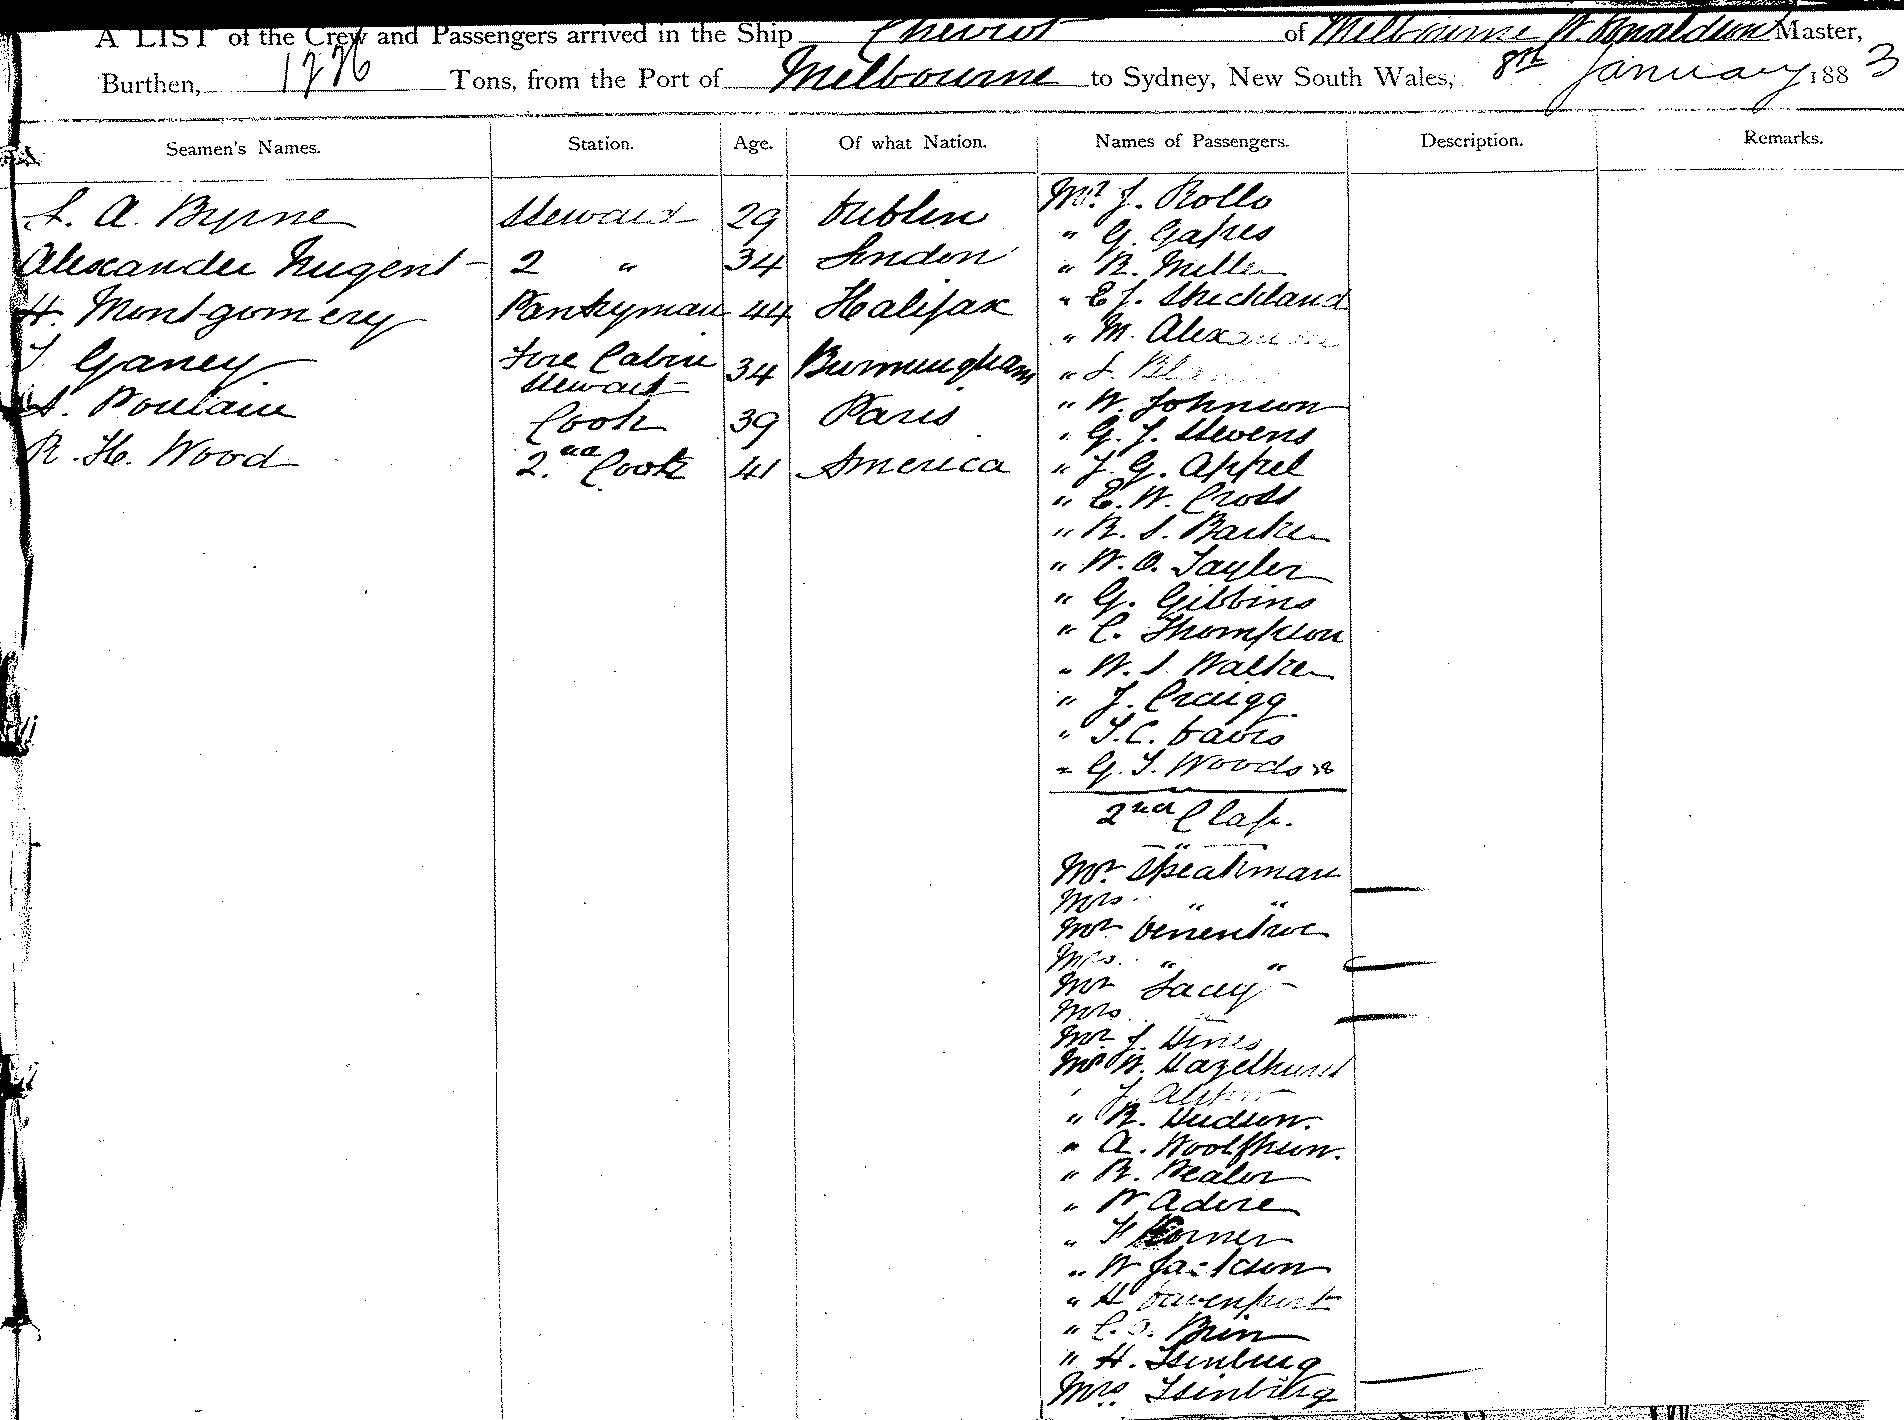 A LIST of the Crew and Passengers arrived in the Ship Cheviot of Melbourne W. Donaldson Master,
Burthen, 1226 Tons, from the Port of Melbourne to Sydney, New South Wales, 8th January 1883
Seamen's Names. Station. Age. Of what Nation. Names of Passengers. Description. Remarks.
A. Byrne Steward 29 Dublin
Alexander Nugent 2 " 34 London
H. Montgomery Pantryman 44 Halifax
Ganey Fore Cabin Steward 34 Burmingham
Poulain Cook 39 Paris
R. H. Wood 2nd Cook 41 America
Mr. J. Rollo
" G. Gapes
" R. Miller
" E J. Strickland
" M. Alexander
"
" W. Johnson
" G. J. Stevens
" J. G. Appel
" E. W. Cross
" R. S. Barker
" W. O. Tayler
" G. Gibbins
" C. Thompson
" W. S. Walker
" J. Craigg
" T. C. Davis
" G. T. Woods 18
2nd Class.
"
Mr. Speakman
Mrs " "
Mr
Mrs " "
Mr Lacey
Mrs
Mr J. Hines
Mr W. Hazelhurst
J.
" R. Hudson.
" A. Woolfson.
" R.
" W Adore
" F Horner
" W Jackson
" H Davenport
" C. O. Brin
" H. Isinburg
Mrs. Isinburg